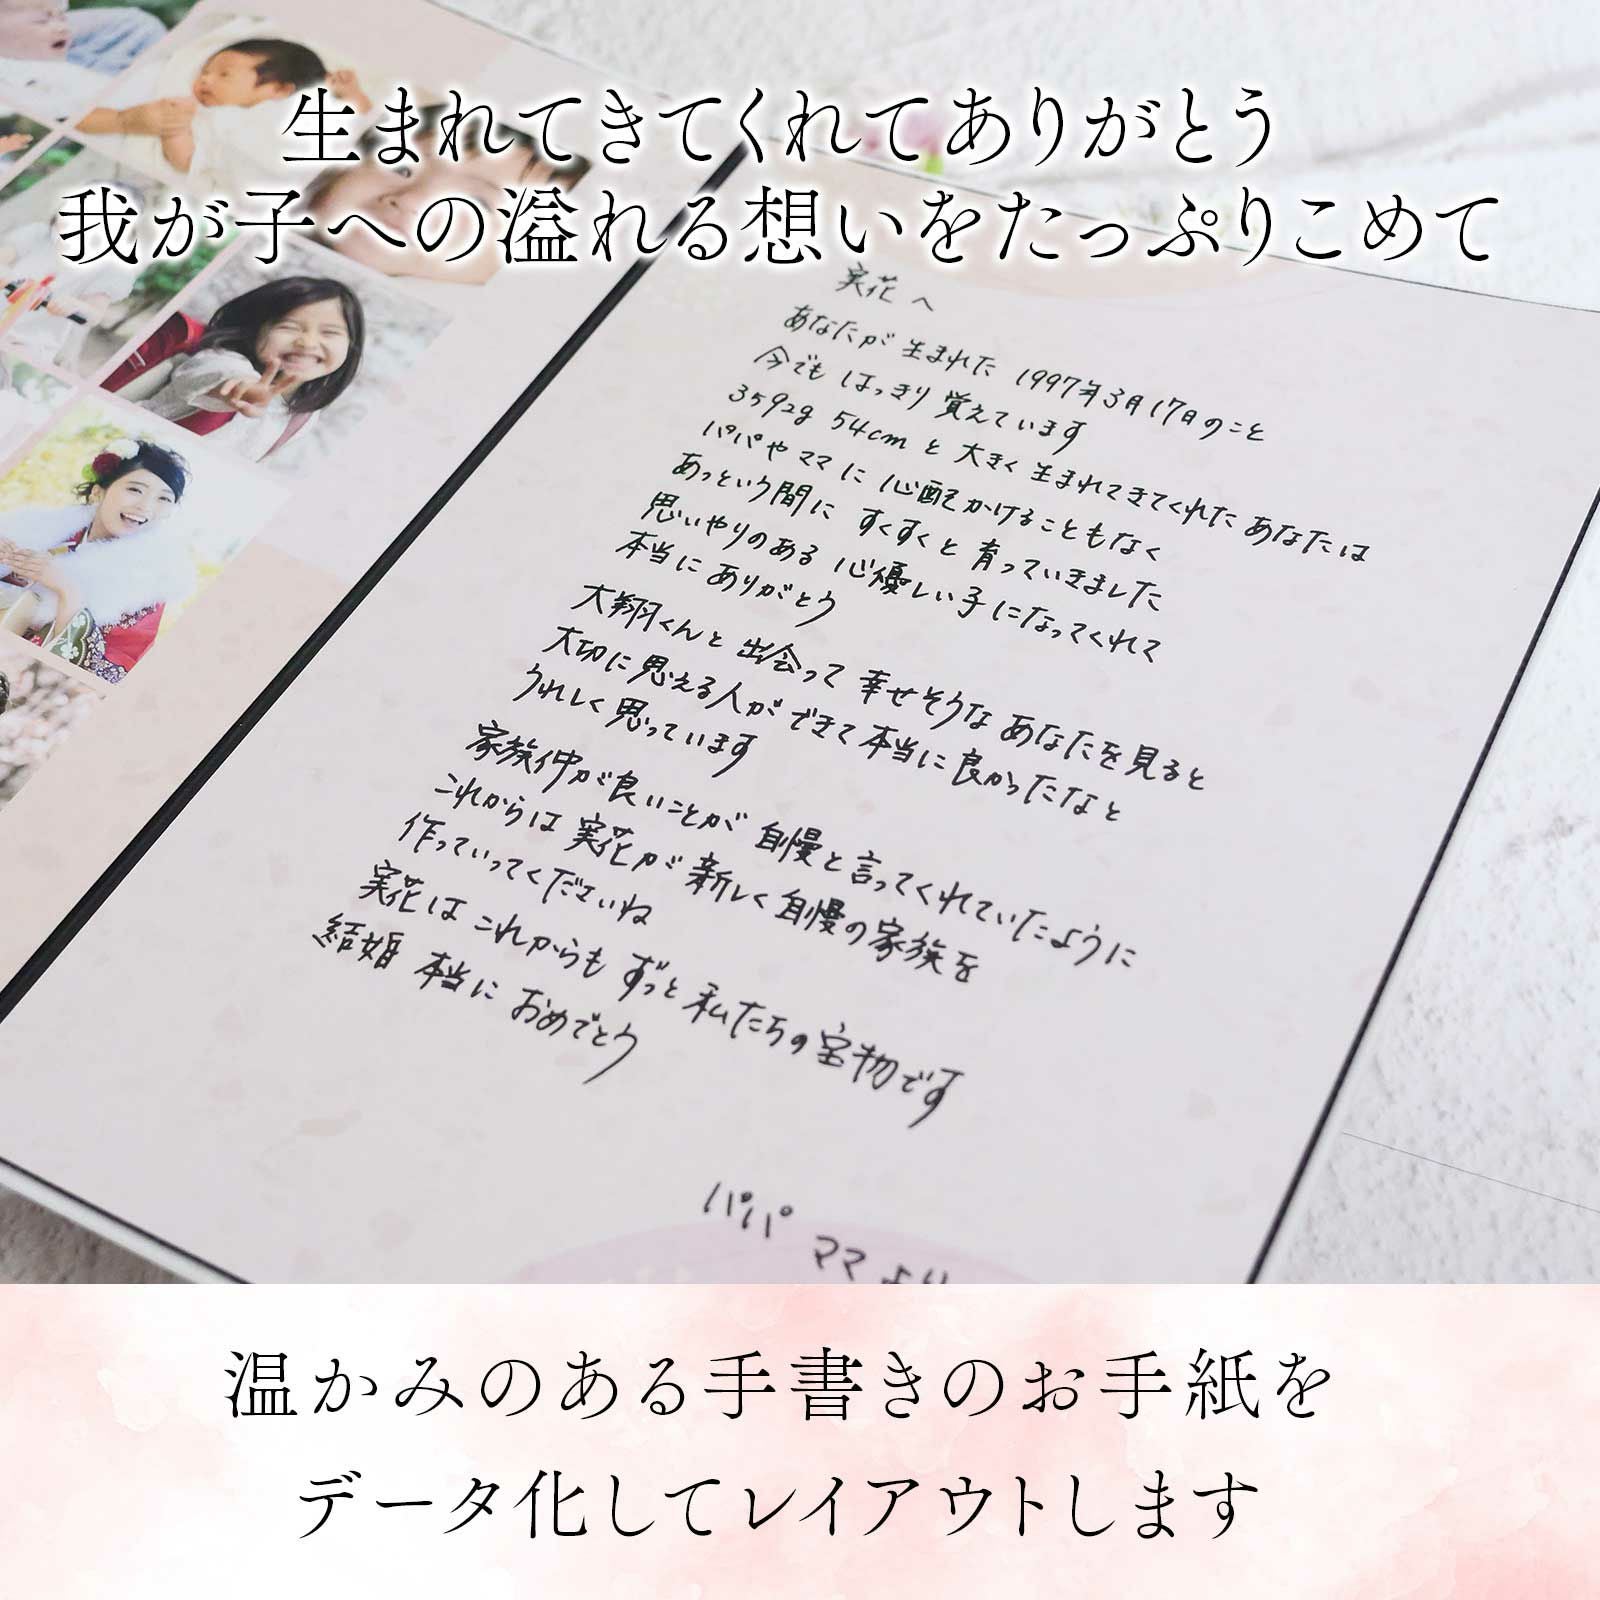 生まれてきてくれてありがとう
我が子への溢れる想いをたっぷりこめて
実花へ
あなたが 生まれた 1997年3月17日のこと
今でも はっきり 覚えています
3592g 54cm と 大きく 生まれてきてくれた あなたは
パパや ママに 心配かけることもなく
あっという間に すくすくと 育っていきました
思いやりのある 心優しい子になってくれて
本当に ありがとう
大翔くんと 出会って 幸せそうな あなたを見ると
大切に思える人が できて 本当に良かったなと
うれしく 思っています
家族仲が良いことが 自慢と言ってくれていたように
これからは 実花が 新しく 自慢の家族を
作っていってくださいね
実花は これからも ずっと 私たちの宝物です
結婚 本当に おめでとう
パパ ママより
温かみのある手書きのお手紙を
データ化してレイアウトします